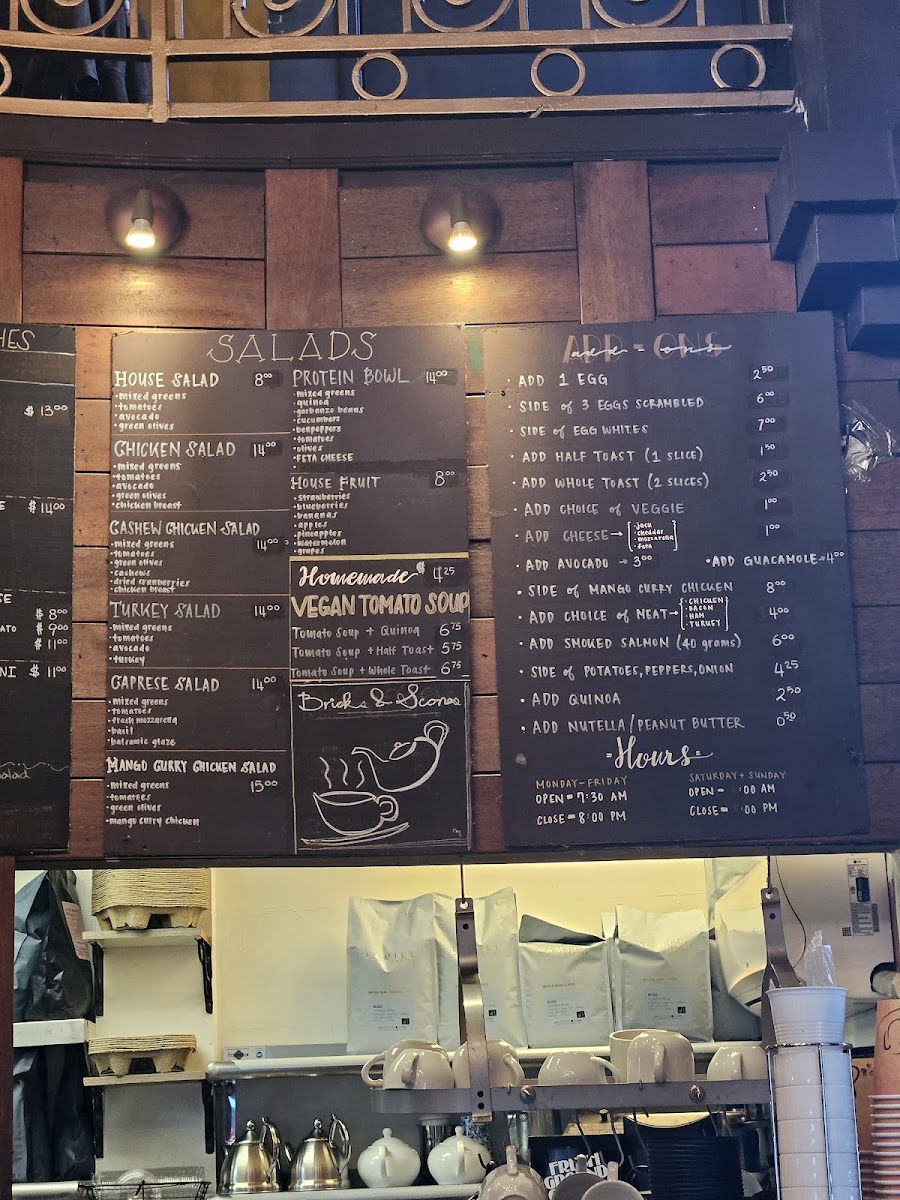 HES
$ 13⁰⁰
E $ 14⁰⁰
SE
$ 8⁰⁰
ATO $ 9⁰⁰
$ 11⁰⁰
NI $ 11⁰⁰
alad
SALADS
HOUSE SALAD 8⁰⁰
•mixed greens
•tomatoes
•avocado
•green olives
CHICKEN SALAD 14⁰⁰
•mixed greens
•tomatoes
•avocado
•green olives
chicken breast
CASHEW CHICKEN SALAD
14⁰⁰
•mixed greens
•tomatoes
•green olives
•cashews
•dried cranberries
•chicken breast
TURKEY SALAD 14⁰⁰
•mixed greens
•tomatoes
•avocado
•turkey
CAPRESE SALAD 14⁰⁰
•mixed greens
•tomatoes
•fresh mozzarella
•basil
•balsamic glaze
MANGO CURRY CHICKEN SALAD
15⁰⁰
•mixed greens
•tomatoes
•green olives
•mango curry chicken
PROTEIN BOWL 14⁰⁰
•mixed greens
•quinoa
•garbanzo beans
•cucumbers
•bellpeppers
•tomatoes
•olives
•FETA CHEESE
HOUSE FRUIT 8⁰⁰
•strawberries
•blueberries
•bananas
•apples
•pineapples
•watermelon
•grapes
Homemade $ 4.25
VEGAN TOMATO SOUP
Tomato Soup + Quinoa 6⁷⁵
Tomato Soup + Half Toast 5⁷⁵
Tomato Soup + Whole Toast 6⁷⁵
Bricks & Scones
ADD - ONS
add - ons
• ADD 1 EGG 2⁵⁰
• SIDE of 3 EGGS SCRAMBLED 6⁰⁰
• SIDE of EGG WHITES 7⁰⁰
• ADD HALF TOAST (1 SLICE) 1⁵⁰
• ADD WHOLE TOAST (2 SLICES) 2⁵⁰
• ADD CHOICE of VEGGIE 1⁰⁰
• ADD CHEESE→ [•jack •cheddar •mozzarella •feta] 1⁰⁰
• ADD AVOCADO - 3⁰⁰ •ADD GUACAMOLE - 4⁰⁰
• SIDE of MANGO CURRY CHICKEN 8⁰⁰
• ADD CHOICE of MEAT→ {•CHICKEN •BACON •HAM •TURKEY} 4⁰⁰
• ADD SMOKED SALMON (40 grams) 6⁰⁰
• SIDE of POTATOES, PEPPERS, ONION 4²⁵
• ADD QUINOA 2⁵⁰
• ADD NUTELLA/PEANUT BUTTER 0⁵⁰
=Hours=
MONDAY-FRIDAY
OPEN = 7:30 AM
CLOSE = 8:00 PM
SATURDAY + SUNDAY
OPEN = :00 AM
CLOSE = :00 PM